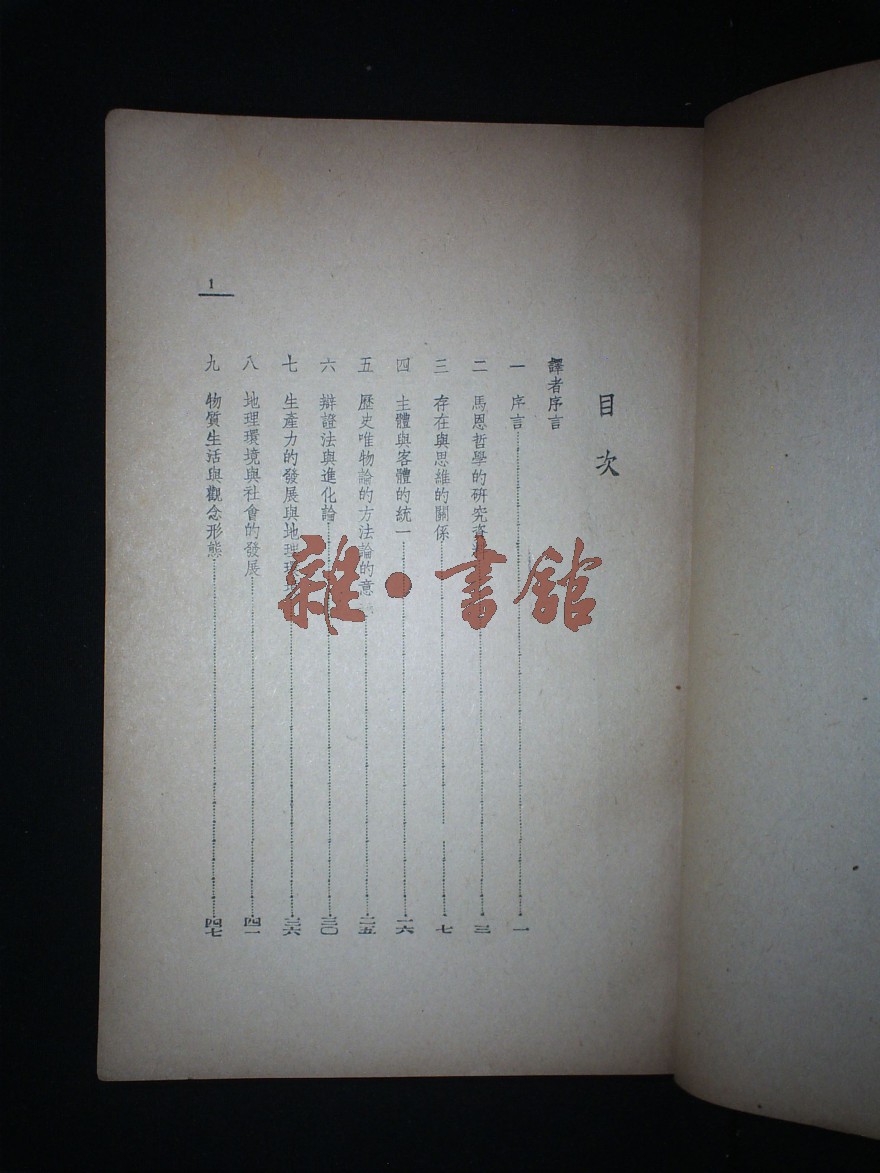 目次
譯者序言
一 序言 一
二 馬恩哲學的研究資 三
三 存在與思維的關係 七
四 主體與客體的統一 一六
五 歷史唯物論的方法論的意 二五
六 辯證法與進化論 三〇
七 生產力的發展與地理環 三六
八 地理環境與社會的發展 四一
九 物質生活與觀念形態 四七
1
雜·書館